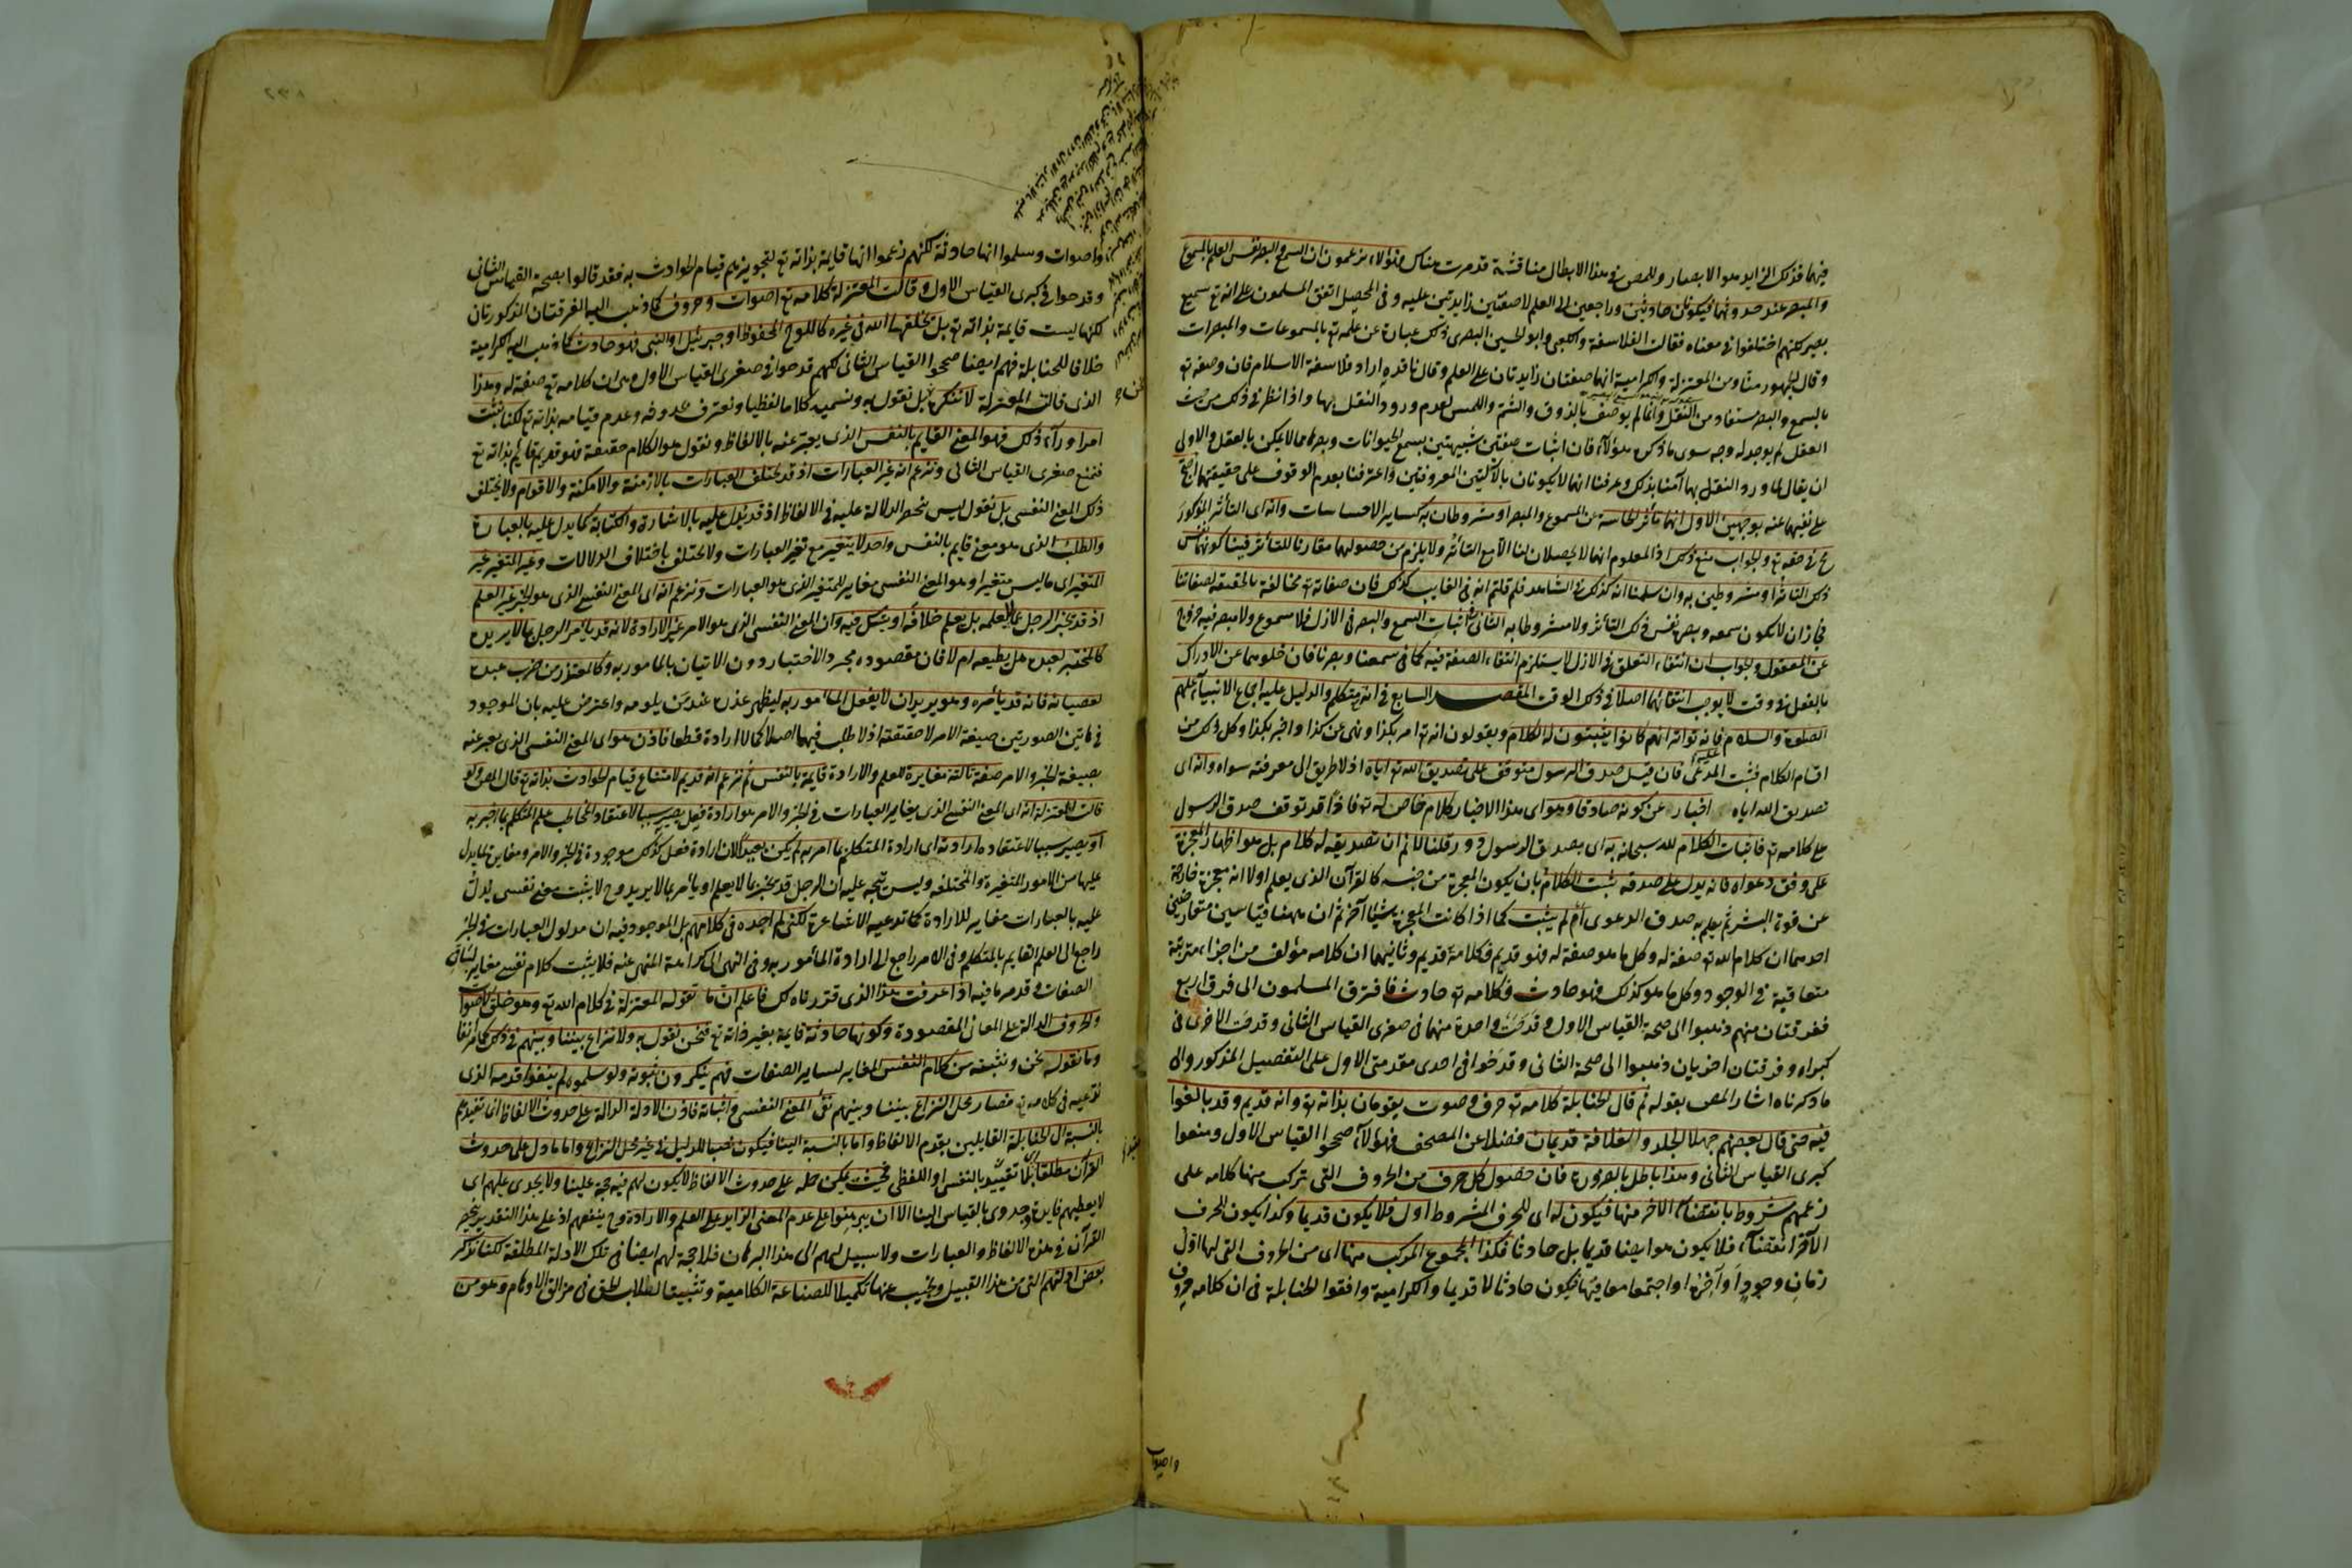 فيهما فذلك الزايد هو الابصار وللمص في هذا الابطال مناقشة قد مرت هناك وهؤلاء يزعمون ان السمع والبصر نفس العلم بالمسموع
والمبصر عند حدوثهما فيكونان حادثين وراجعين الى العلم لا صفتين زايدتين عليه وفى المحصل اتفق المسلمون على انه تع سميع
بصير لكنهم اختلفوا في معناه فقالت الفلاسفة والكعبى وابو الحسين البصرى ذلك عبارة عن علمه تع بالمسموعات والمبصرات
وقال الجمهور منا ومن المعتزلة والكرامية انهما صفتان زايدتان على العلم وقال ناقده اراد فلاسفة الاسلام فان وصفه تع
بالسمع والبصر مستفاد من النقل وانما لم يوصف بالذوق والشم واللمس لعدم ورود النقل بها واذا نظر في ذلك من حيث
العقل لم يوجد له وجه سوى ما ذكره هؤلاء فان اثبات صفتين شبيهتين بسمع الحيوانات وبصرها مما لا يمكن بالعقل والاولى
ان يقال لما ورد النقل بهما آمنا بذلك وعرفنا انهما لا يكونان بالآلتين المعروفتين واعترفنا بعدم الوقوف على حقيقتهما احتج
على نفيهما عنه بوجهين الاول انهما تأثر الحاسة عن المسموع والمبصر او مشروطان به كساير الاحساسات وانه اى التأثر المذكور
مح في حقه تع والجواب منع ذلك اذ المعلوم انهما لا يحصلان لنا الا مع التأثر ولا يلزم من حصولهما مقارنا للتأثر فينا كونهما نفس
ذلك التأثر او مشروطين به وان سلمنا انه كذلك في الشاهد فلم قلتم انه في الغايب كذلك فان صفاته تع مخالفة بالحقيقة لصفاتنا
فجاز ان لا يكون سمعه وبصره نفس ذلك التأثر ولا مشروطا به الثانى اثبات السمع والبصر في الازل فلا مسموع ولا مبصر فيه خروج
عن المعقول والجواب ان انتفاء التعلق في الازل لا يستلزم انتفاء الصفة فيه كما في سمعنا وبصرنا فان خلوهما عن الادراك
بالفعل في وقت لا يوجب انتفائهما اصلا في ذلك الوقت المقصد السابع في انه متكلم والدليل عليه اجماع الانبياء عليهم
الصلوة والسلام فانه تواتر انهم كانوا يثبتون له الكلام ويقولون انه تع امر بكذا ونهى عن كذا واخبر بكذا وكل ذلك من
اقسام الكلام فثبت المدعى فان قيل صدق الرسول متوقف على تصديق الله تع اياه اذ لا طريق الى معرفته سواه وانه اى
تصديق الله اياه اخبار عن كونه صادقا وهو اى هذا الاخبار كلام خاص له تع فاذا قد توقف صدق الرسول
على كلامه تع فاثبات الكلام لله سبحانه به اى بصدق الرسول دور قلنا لا نم ان تصديقه له كلام بل هو اظهار المعجزة
على وفق دعواه فانه يدل على صدقه ثبت الكلام بان يكون المعجزة من جنسه كالقرآن الذى يعلم اولا انه معجزة خارجة
عن قوة البشر ثم يعلم به صدق الدعوى ام لم يثبت كما اذا كانت المعجزة شيئا آخر ثم ان ههنا قياسين متعارضين
احدهما ان كلام الله تع صفة له وكل ما هو صفة له فهو قديم فكلامه قديم وثانيهما ان كلامه مؤلف من اجزاء مترتبة
متعاقبة في الوجود وكل ما هو كذلك فهو حادث فكلامه تع حادث فافترق المسلمون الى فرق اربع
ففرقتان منهم ذهبوا الى صحة القياس الاول وقدحت واحدة منهما في صغرى القياس الثانى وقدحت الاخرى في
كبراه وفرقتان اخريان ذهبوا الى صحة الثانى وقدحوا في احدى مقدمتى الاول على التفصيل المذكور والى
ما ذكرناه اشار المص بقوله ثم قال الحنابلة كلامه تع حرف وصوت يقومان بذاته تع وانه قديم وقد بالغوا
فيه حتى قال بعضهم جهلا الجلد والغلافة قديمان فضلا عن المصحف فهؤلاء صححوا القياس الاول ومنعوا
كبرى القياس الثانى وهذا باطل بالضرورة فان حصول كل حرف من الحروف التى تركب منها كلامه على
زعمهم مشروط بانقضاء الاخر منها فيكون له اى للحرف المشروط اول فلا يكون قديما وكذا يكون للحرف
الآخر انقضاء فلا يكون هو ايضا قديما بل حادثا فكذا المجموع المركب منها اى من الحروف التى لها اول
زمان وجود او آخره او اجتمعا معا فيها فيكون حادثا لا قديما والكرامية وافقوا الحنابلة في ان كلامه حروف
واصوات
واصوات وسلموا انها حادثة لكنهم زعموا انها قايمة بذاته تع لتجويزهم قيام الحوادث به فقد قالوا بصحة القياس الثانى
وقدحوا في كبرى القياس الاول وقالت المعتزلة كلامه تع اصوات وحروف كما ذهب اليه الفرقتان المذكورتان
لكنها ليست قايمة بذاته تع بل يخلقها الله في غيره كاللوح المحفوظ او جبرئيل او النبى فهو حادث كما ذهب اليه الكرامية
خلافا للحنابلة فهم ايضا صححوا القياس الثانى لكنهم قدحوا في صغرى القياس الاول وهى ان كلامه تع صفة له وهذا
الذى قالته المعتزلة لا ننكره بل نقول به ونسميه كلاما لفظيا ونعترف بحدوثه وعدم قيامه بذاته تع لكنا نثبت
امرا وراء ذلك فهو المعنى القايم بالنفس الذى يعبر عنه بالالفاظ ونقول هو الكلام حقيقة فهو قديم قايم بذاته تع
فنمنع صغرى القياس الثانى ونزعم انه غير العبارات اذ قد تختلف العبارات بالازمنة والامكنة والاقوام ولا يختلف
ذلك المعنى النفسى بل نقول ليس ينحصر الدلالة عليه في الالفاظ اذ قد يدل عليه بالاشارة والكتابة كما يدل عليه بالعبارة
والطلب الذى هو معنى قايم بالنفس واحد لا يتغير مع تغير العبارات ولا يختلف باختلاف الدلالات وغير المتغير غير
المتغير اى ما ليس متغيرا وهو المعنى النفسى مغاير للمتغير الذى هو العبارات ونزعم انه اى المعنى النفسى الذى هو الخبر غير العلم
اذ قد يخبر الرجل عما لا يعلمه بل يعلم خلافه او يشك فيه وان المعنى النفسى الذى هو الامر غير الارادة لانه قد يأمر الرجل بما لا يريده
كالمختبر لعبده هل يطيعه ام لا فان مقصوده مجرد الاختبار دون الاتيان بالمأمور به وكالمعتذر من ضرب عبده
بعصيانه فانه قد يأمره وهو يريد ان لا يفعل المأمور به ليظهر عذره عند من يلومه واعترض عليه بان الموجود
في هاتين الصورتين صيغة الامر لا حقيقته اذ لا طلب فيهما اصلا كما لا ارادة قطعا فاذن هو اى المعنى النفسى الذى يعبر عنه
بصيغة الخبر والامر صفة ثالثة مغايرة للعلم والارادة قايمة بالنفس ثم نزعم انه قديم لامتناع قيام الحوادث بذاته تع قال المص ولو
قالت المعتزلة انه اى المعنى النفسى الذى يغاير العبارات في الخبر والامر هو ارادة فعل يصير سببا لاعتقاد المخاطب علم المتكلم بما اخبر به
او يصير سببا لاعتقاده ارادته اى ارادة المتكلم لما امر به لم يكن بعيدا لان ارادة فعل كذلك موجودة في الخبر والامر ومغايرة لما يدل
عليها من الامور المتغيرة والمختلفة وليس يتجه عليه ان الرجل قد يخبر بما لا يعلم او يأمر بما لا يريد وح لا يثبت معنى نفسى يدل
عليه بالعبارات مغاير للارادة كما تدعيه الاشاعرة لكنى لم اجده في كلامهم بل الموجود فيه ان مدلول العبارات في الخبر
راجع الى العلم القايم بالمتكلم وفى الامر راجع الى ارادة المأمور به وفى النهى الى كراهة المنهى عنه فلا يثبت كلام نفسى مغاير لساير
الصفات وقد مر ما فيه اذا عرفت هذا الذى قررناه لك فاعلم ان ما تقوله المعتزلة في كلام الله تع وهو خلق الاصوات
والحروف الدالة على المعانى المقصودة وكونها حادثة قايمة بغير ذاته تع فنحن نقول به ولا نزاع بيننا وبينهم في ذلك كما مر آنفا
وما نقوله نحن ونثبته من كلام النفس المغاير لساير الصفات فهم ينكرون ثبوته ولو سلموه لم ينفوا قدمه الذى
ندعيه في كلامه تع فصار محل النزاع بيننا وبينهم نفى المعنى النفسى واثباته فاذن الادلة الدالة على حدوث الالفاظ انما تفيدهم
بالنسبة الى الحنابلة القايلين بقدم الالفاظ واما بالنسبة الينا فيكون نصبا للدليل في غير محل النزاع واما ما دل على حدوث
القرآن مطلقا بلا تقييد بالنفسى او اللفظى فحيث يمكن حمله على حدوث الالفاظ لا يكون لهم فيه حجة علينا ولا يجدى عليهم اى
لا يعطيهم فايدة وجدوى بالقياس الينا الا ان يبرهنوا على عدم المعنى الزايد على العلم والارادة وح ينفعهم اذ على هذا التقدير ينحصر
القرآن في هذه الالفاظ والعبارات ولا سبيل لهم الى هذا البرهان فلا حجة لهم ايضا في تلك الادلة المطلقة لكنا نذكر
بعض ادلتهم التى من هذا القبيل ونجيب عنها تكميلا للصناعة الكلامية وتثبيتا لطلاب الحق في مزالق الاوهام وهو من